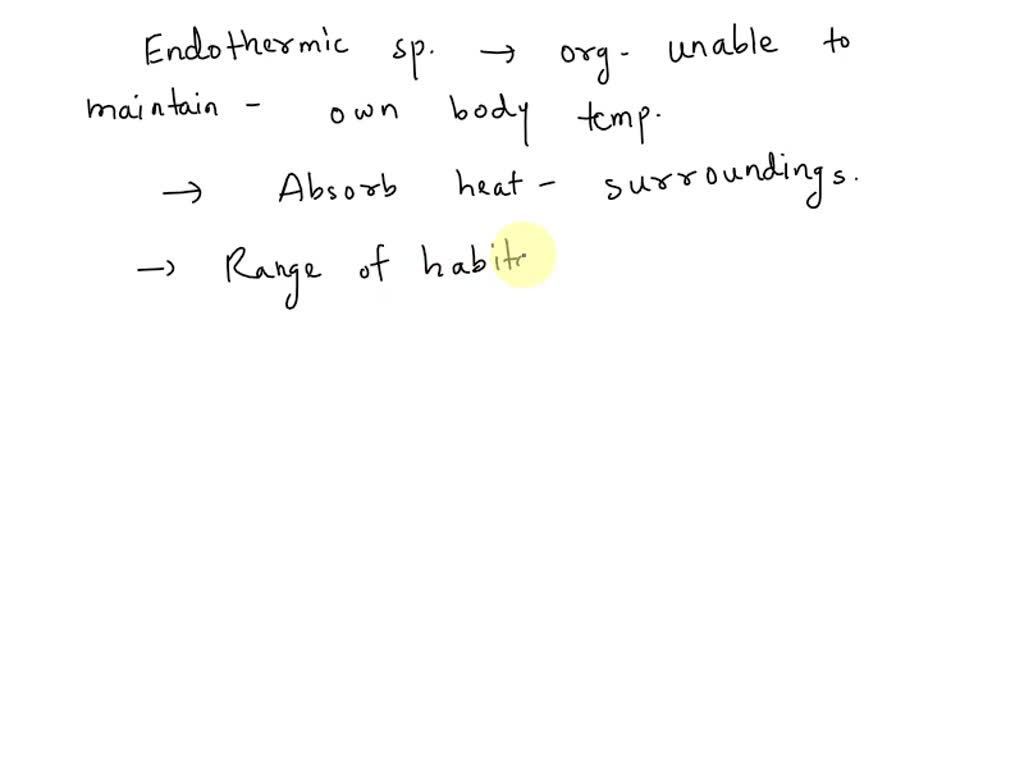 Endothermic sp. → org - unable to
maintain - own body temp.
→ Absorb heat - surroundings.
→ Range of habit